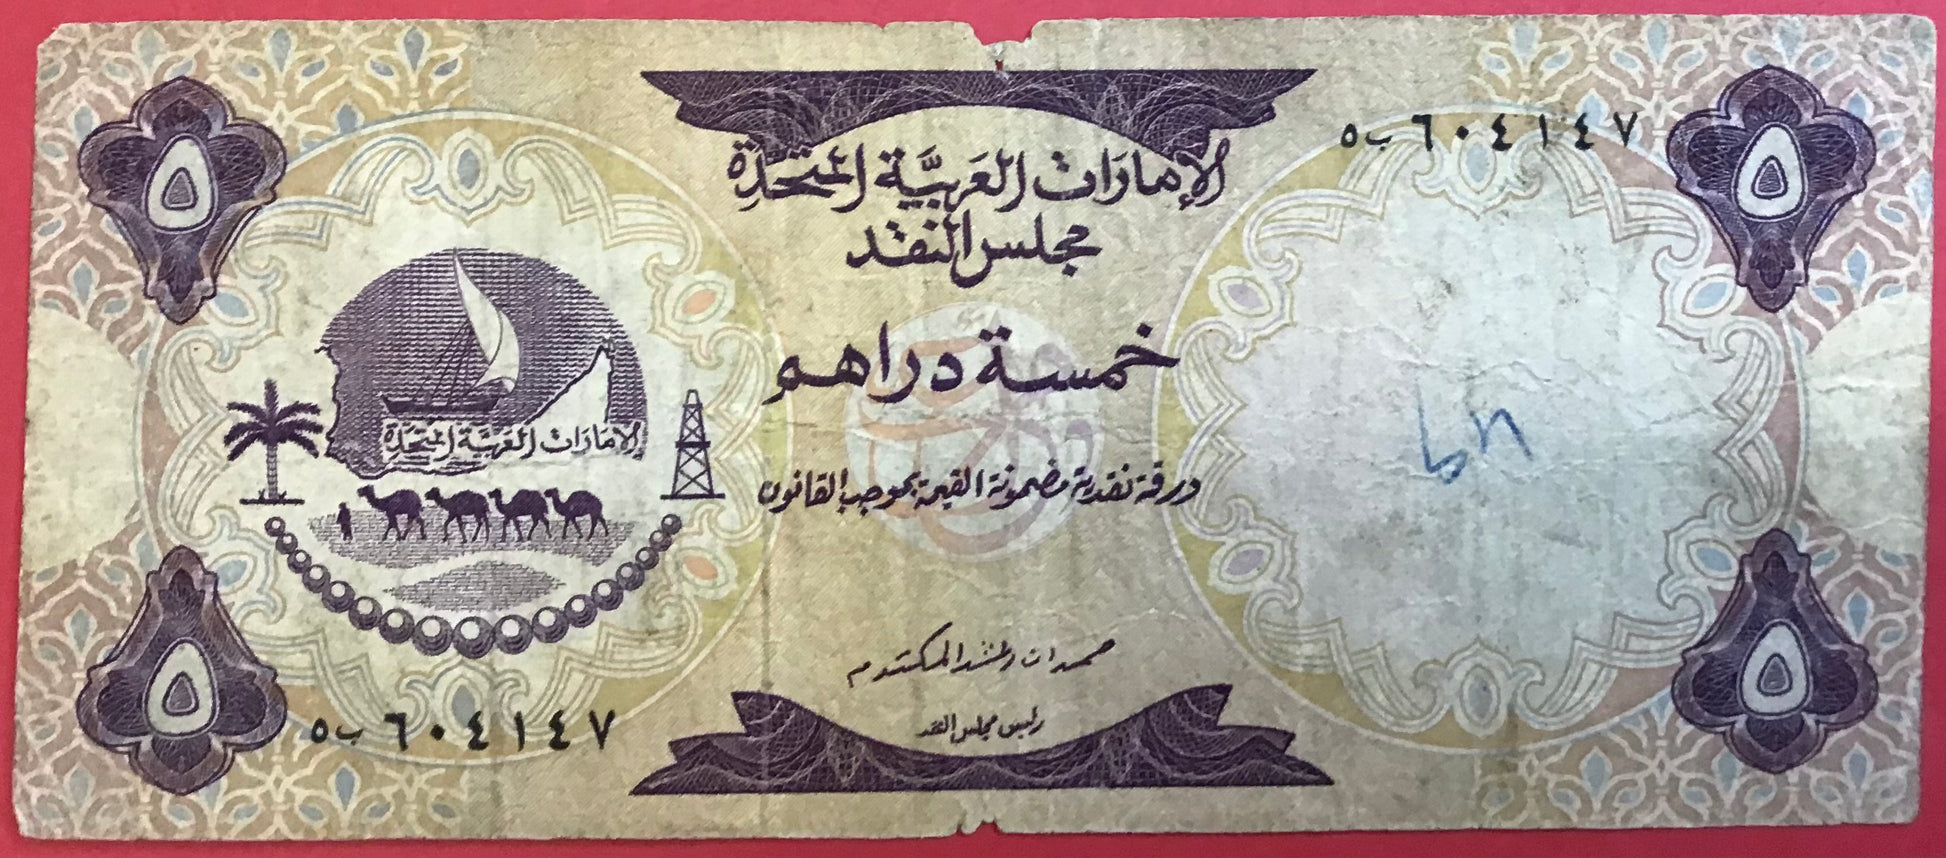 ٥ ٥
٥ب ٦٠٤١٤٧
الإمارات العربية المتحدة
مجلس النقد
خمسة دراهم
الإمارات العربية المتحدة
ورقة نقدية مضمونة القيمة بموجب القانون
رئيس مجلس النقد
٥ب ٦٠٤١٤٧
٥ ٥